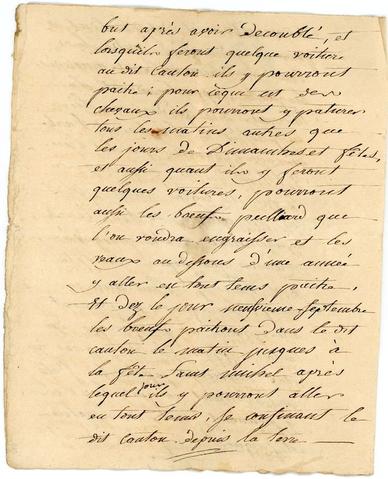 but après avoir Decoublé, et
lorsquils feront quelque voiture
au dit Canton ils y pourront
paitre; pour cequi est des
chevaux ils pourront y paturer
tous les matins autres que
les jours de Dimanches et fêtes,
et aussi quant ils y feront
quelques voitures, pourront
aussi les bœufs que
l'on voudra engraisser et les
veaux au dessous d'une année
y aller en tout tems paitre,
Et dez le jour neufvieme Septembre
les bœufs pachons dans le dit
canton le matin jusques à
la fête Saint michel après
lequel jour ils y pourront aller
en tout tems, Se confinant le
dit Canton depuis la terre